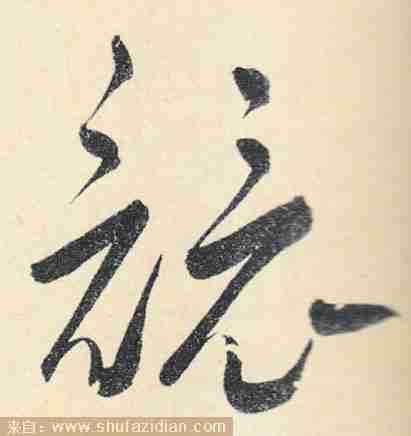 競
来自：www.shufazidian.com